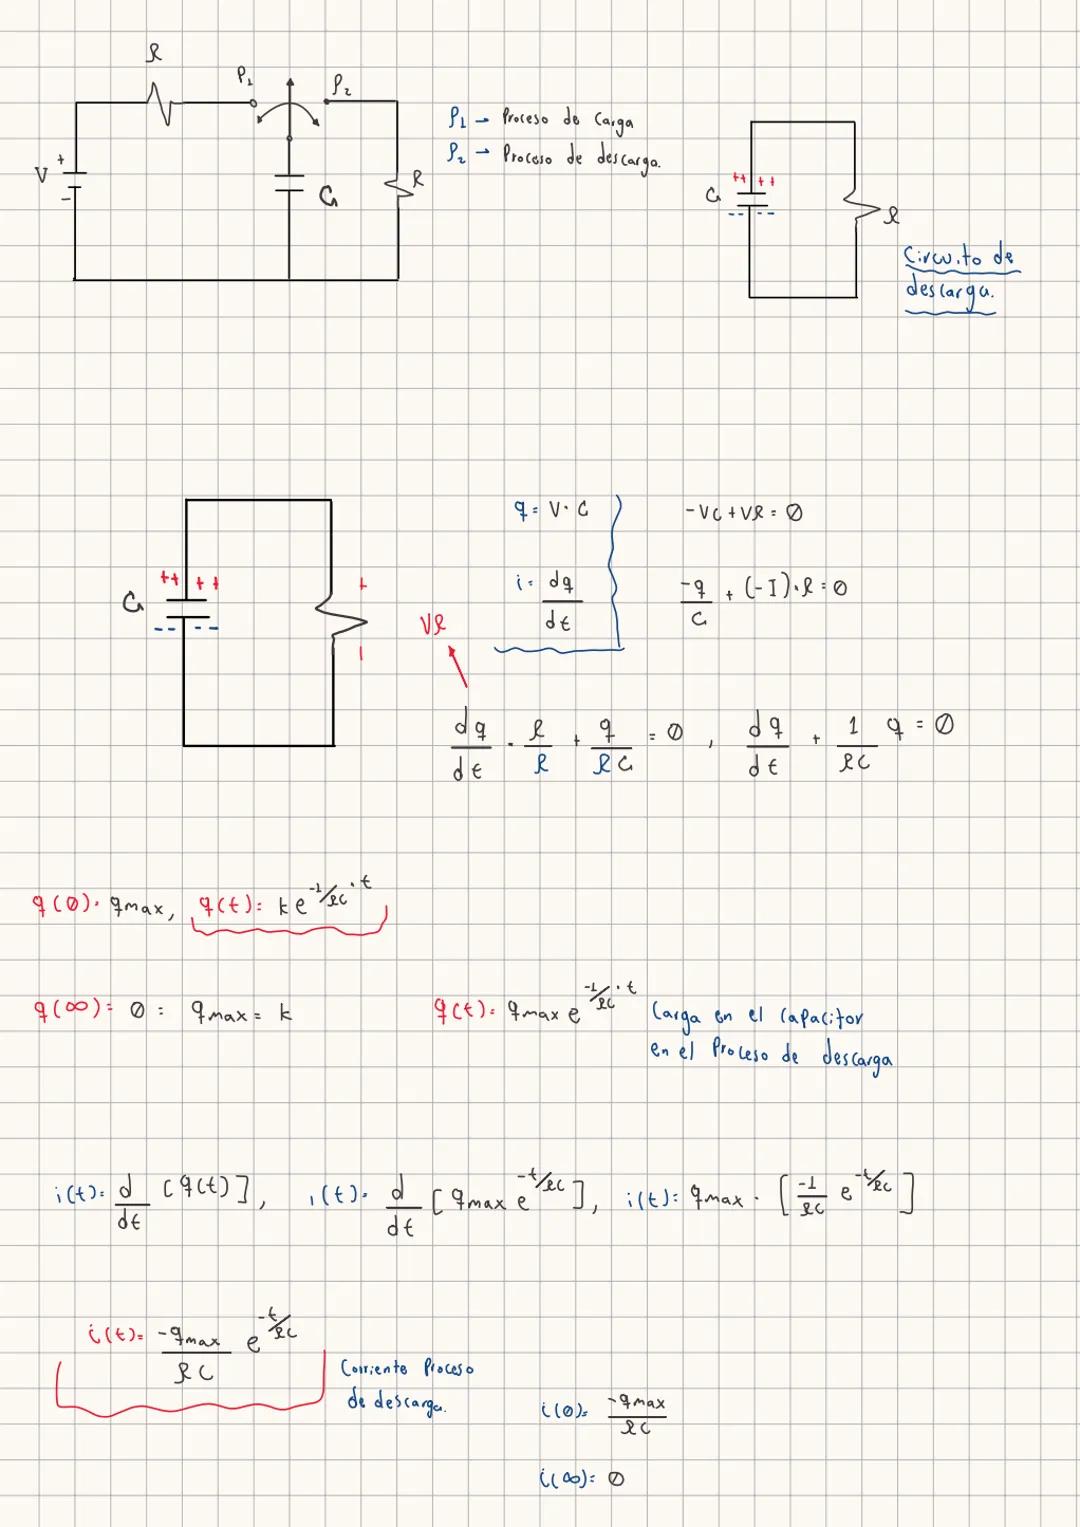 R
P₁
P₂
V
+
-
C
R
P₁ → Proceso de Carga
P₂ → Proceso de descarga.
++ ++
C
-- --
R
Circuito de
descarga.
++ ++
C
-- --
+
-
VR
q = V · C
i = dq/dt
-VC + VR = Ø
-q/C + (-I) · R = 0
dq/dt · R/R + q/RC = Ø , dq/dt + 1/RC q = Ø
q(Ø) = qmax, q(t) = ke^(-1/RC · t)
q(∞) = Ø = qmax = k
q(t) = qmax e^(-1/RC · t)
Carga en el Capacitor
en el Proceso de descarga
i(t) = d/dt [q(t)], i(t) = d/dt [qmax e^(-t/RC)], i(t) = qmax · [-1/RC e^(-t/RC)]
i(t) = -qmax/RC e^(-t/RC)
Corriente Proceso
de descarga.
i(Ø) = -qmax/RC
i(∞) = Ø